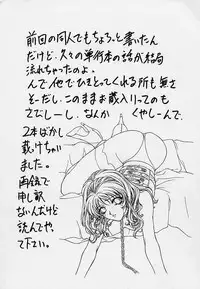 前回の同人でもちょろっと書いたん
だけど、久々の単行本の話が結局
流れちゃったのよ。
んで他でひきとってくれる所も無さ
そーだし、このままお蔵入りってのも
さびしーし、なんか くやしーんで、
2本ばかし
載けちゃい
ました。
再録で
申し訳
ないんだけど
読んでや
って下さい。